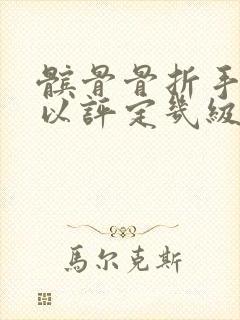 髕骨骨折手
以評定幾級
馬尔克斯